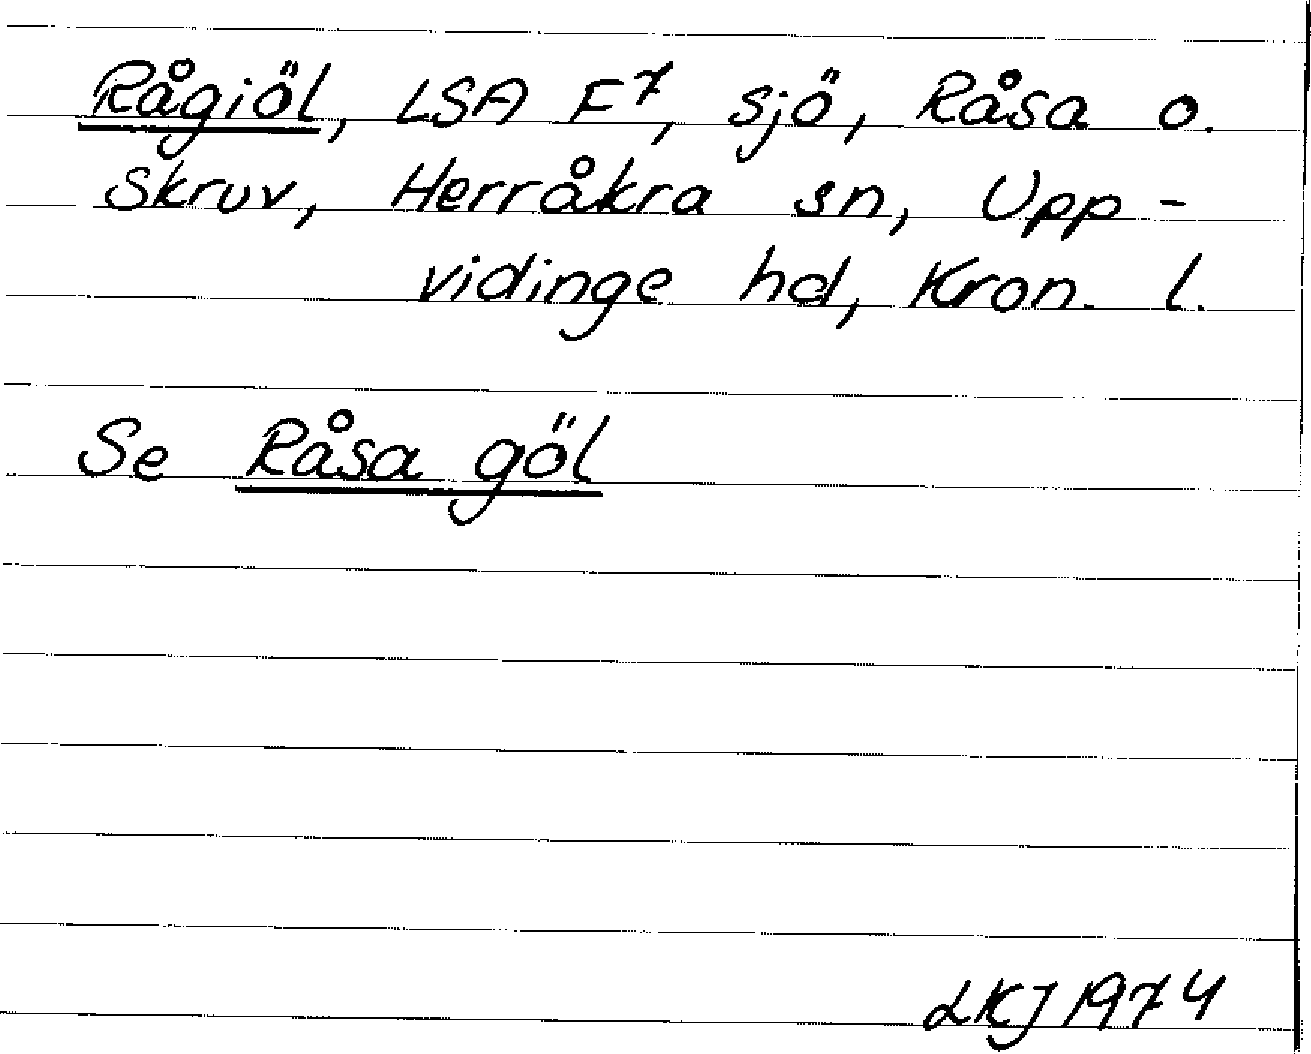 Rågiöl, LSA F7, sjö, Råsa o.
Skruv, Herråkra sn, Upp-
vidinge hd, Kron. l.
Se Råsa göl
LKJ 1974